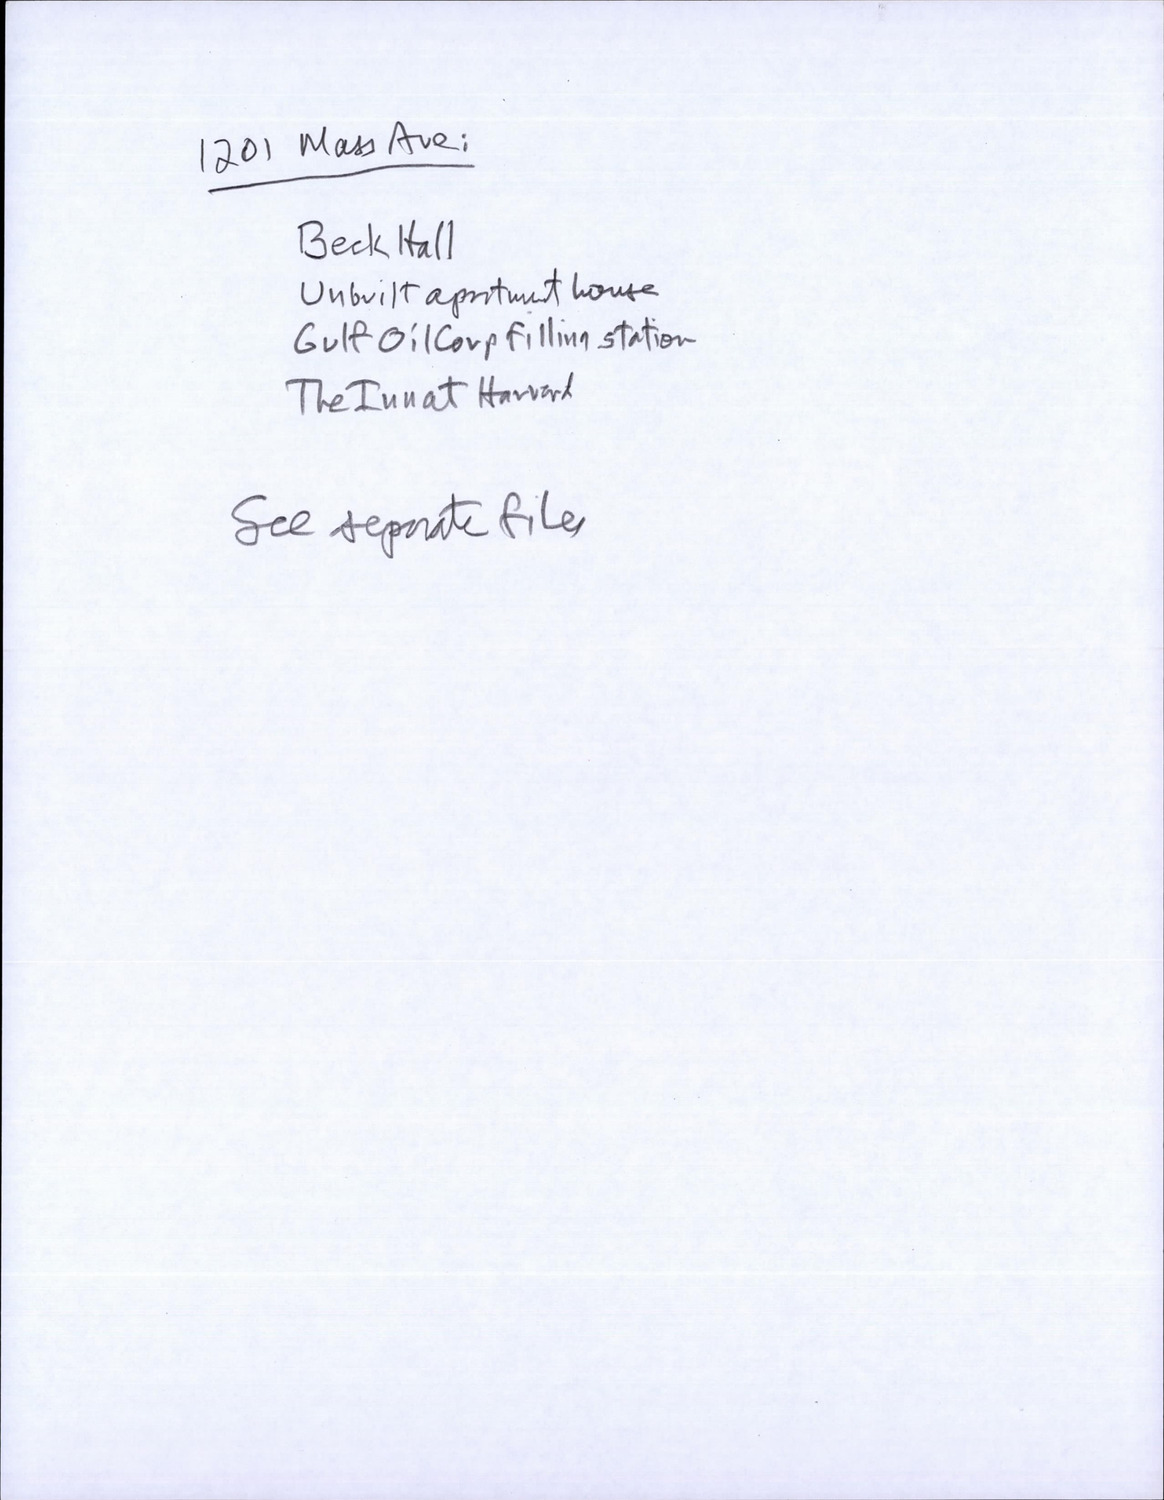 1201 Mass Ave:
Beck Hall
Unbuilt apartment house
Gulf Oil Corp filling station
The Inn at Harvard
See separate files